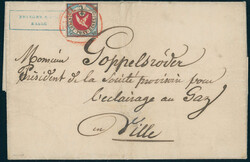 Monsieur Goppelsröder
Président de la Société provisoire pour
l'éclairage au Gaz
en Ville